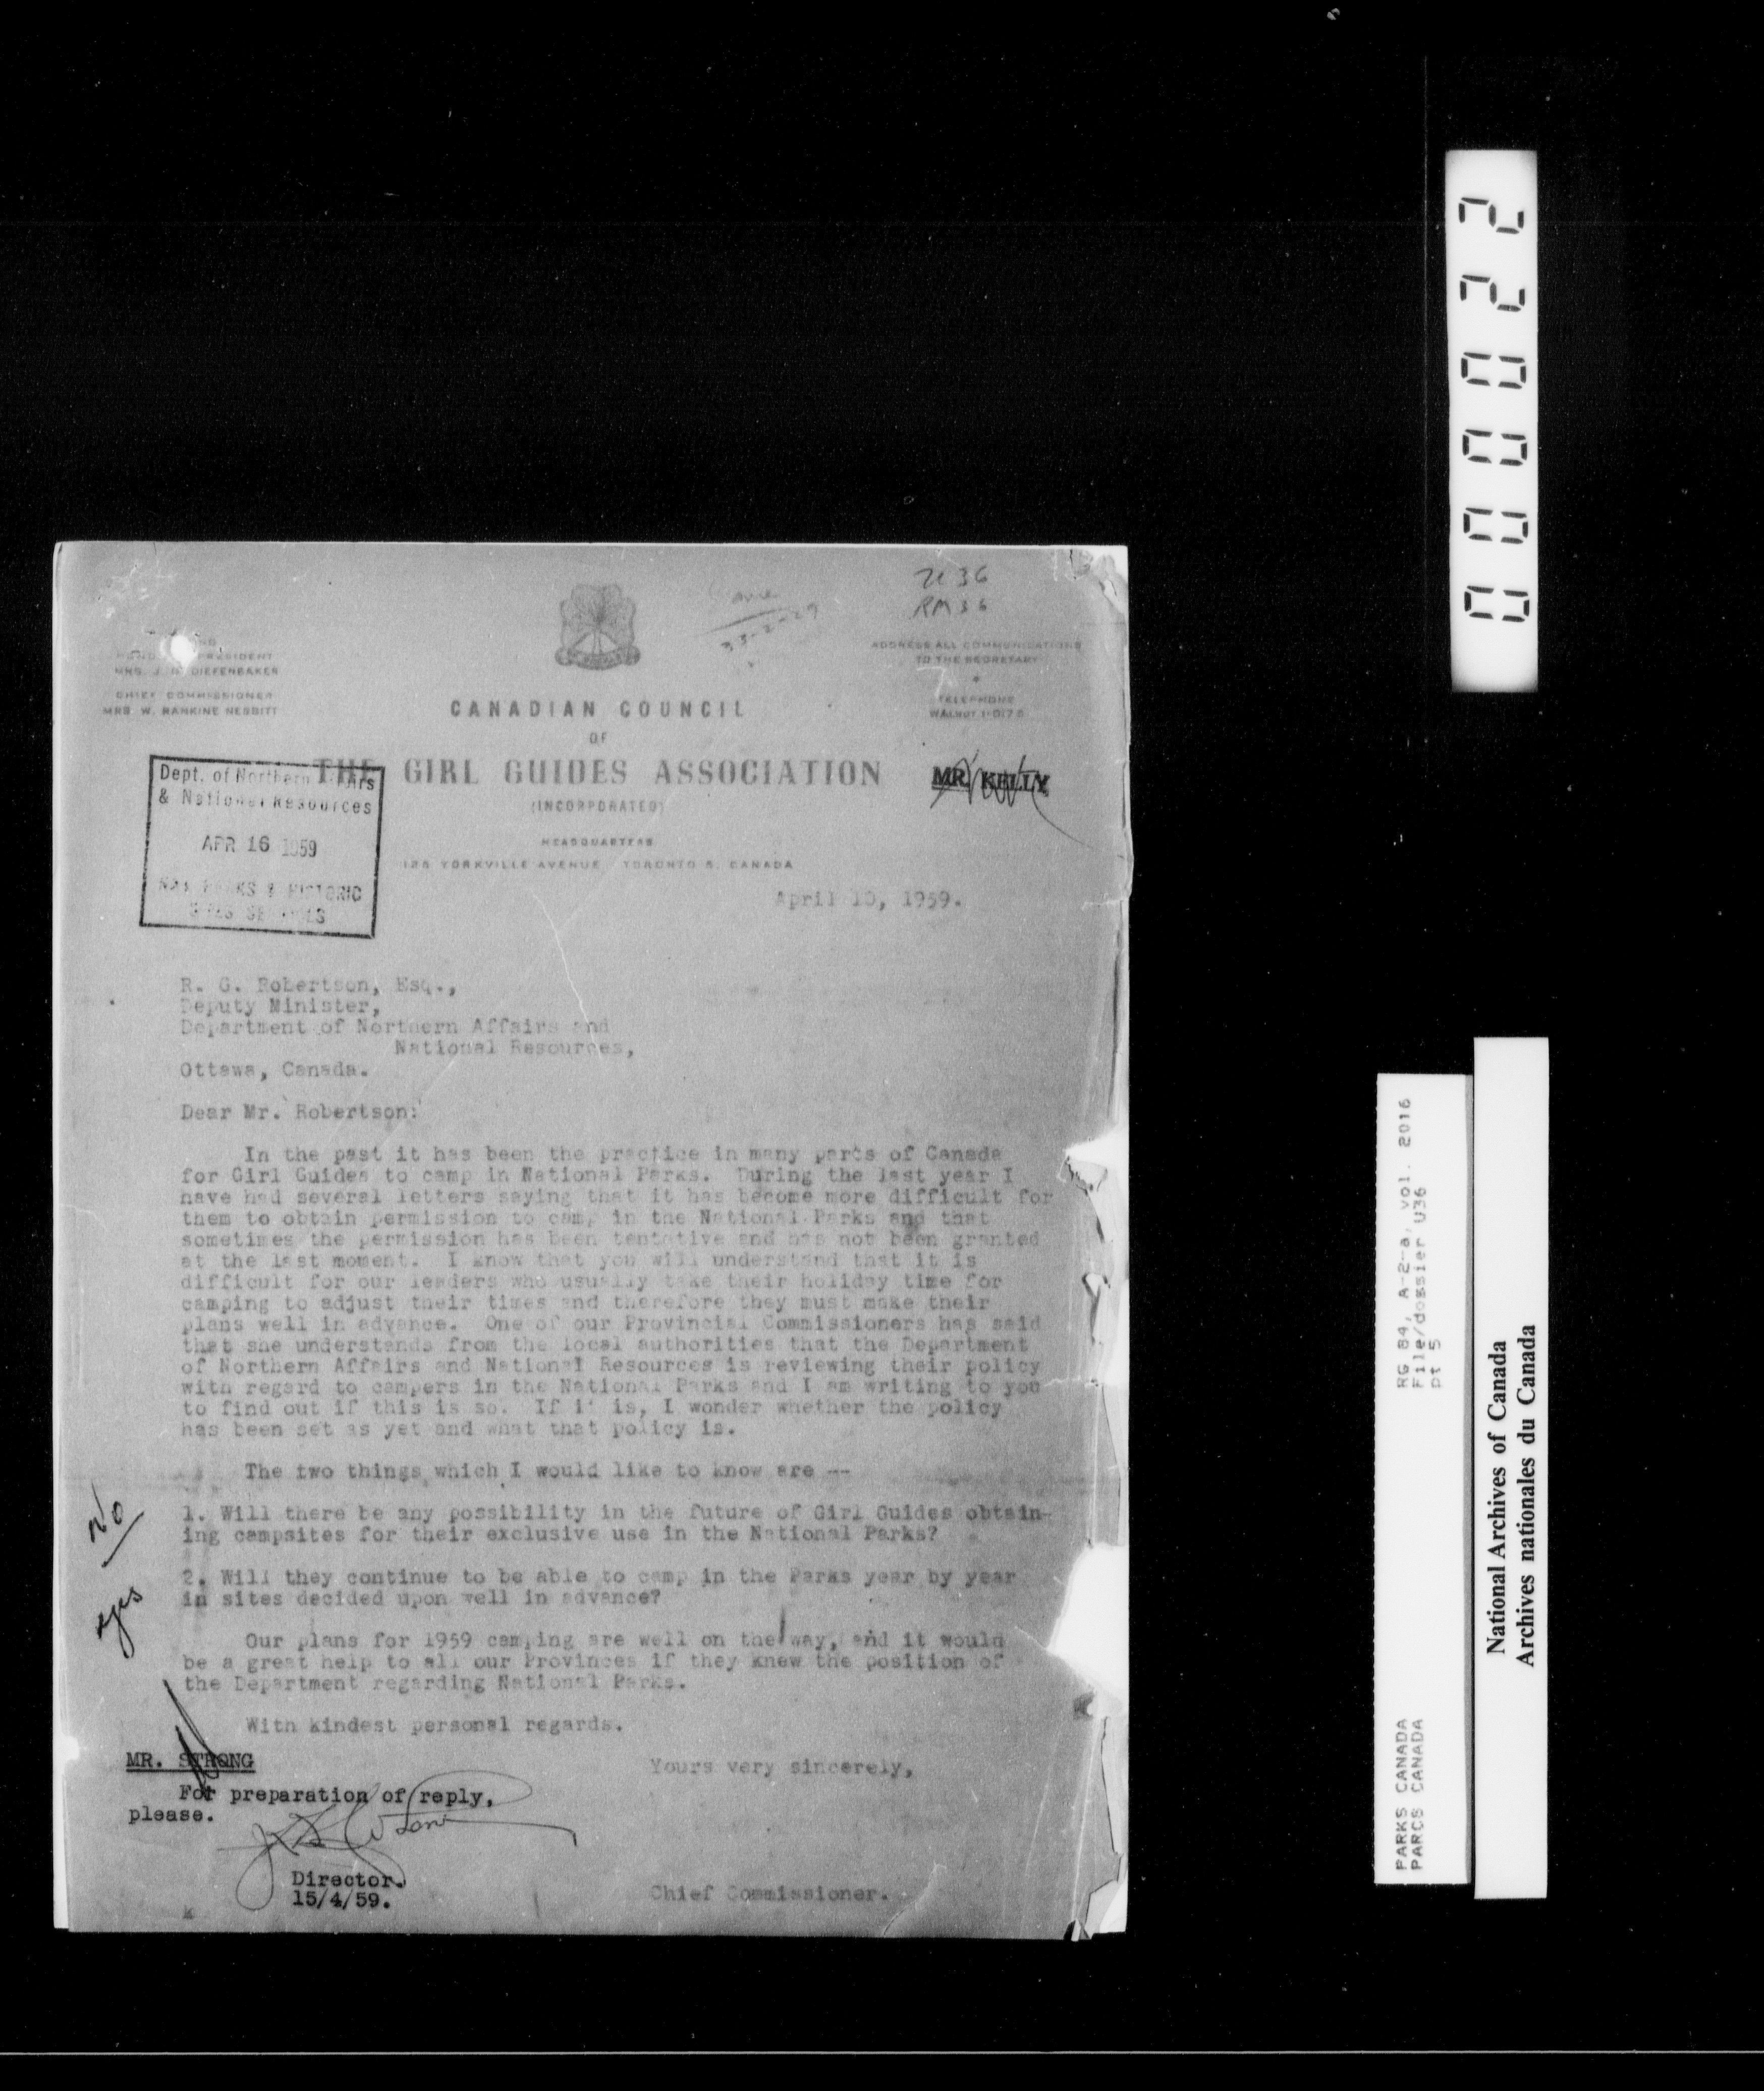 U 36
RM 36
PRESIDENT
MRS. J. G. DIEFENBAKER
CHIEF COMMISSIONER
MRS. W. RANKINE NESBITT
ADDRESS ALL COMMUNICATIONS
TO THE SECRETARY
TELEPHONE
CANADIAN COUNCIL
OF
THE GIRL GUIDES ASSOCIATION
(INCORPORATED)
HEADQUARTERS
YORKVILLE AVENUE, TORONTO 5, CANADA
MR. KELLY
Dept. of Northern Affairs
& National Resources
APR 16 1959
NAT. PARKS & HISTORIC
SITES SERVICES
April 10, 1959.
R. G. Robertson, Esq.,
Deputy Minister,
Department of Northern Affairs and
National Resources,
Ottawa, Canada.
Dear Mr. Robertson:
In the past it has been the practice in many parts of Canada
for Girl Guides to camp in National Parks. During the last year I
have had several letters saying that it has become more difficult for
them to obtain permission to camp in the National Parks and that
sometimes the permission has been tentative and has not been granted
at the last moment. I know that you will understand that it is
difficult for our leaders who usually take their holiday time for
camping to adjust their times and therefore they must make their
plans well in advance. One of our Provincial Commissioners has said
that she understands from the local authorities that the Department
of Northern Affairs and National Resources is reviewing their policy
with regard to campers in the National Parks and I am writing to you
to find out if this is so. If it is, I wonder whether the policy
has been set as yet and what that policy is.
The two things which I would like to know are --
No
1. Will there be any possibility in the future of Girl Guides obtain-
ing campsites for their exclusive use in the National Parks?
yes
2. Will they continue to be able to camp in the Parks year by year
in sites decided upon well in advance?
Our plans for 1959 camping are well on the way, and it would
be a great help to all our Provinces if they knew the position of
the Department regarding National Parks.
With kindest personal regards.
Yours very sincerely,
MR. STRONG
For preparation of reply,
please.
Director.
15/4/59.
Chief Commissioner.
000022
RG 84, A-2-a, vol. 2016
File/dossier U36
pt 5
PARKS CANADA
PARCS CANADA
National Archives of Canada
Archives nationales du Canada